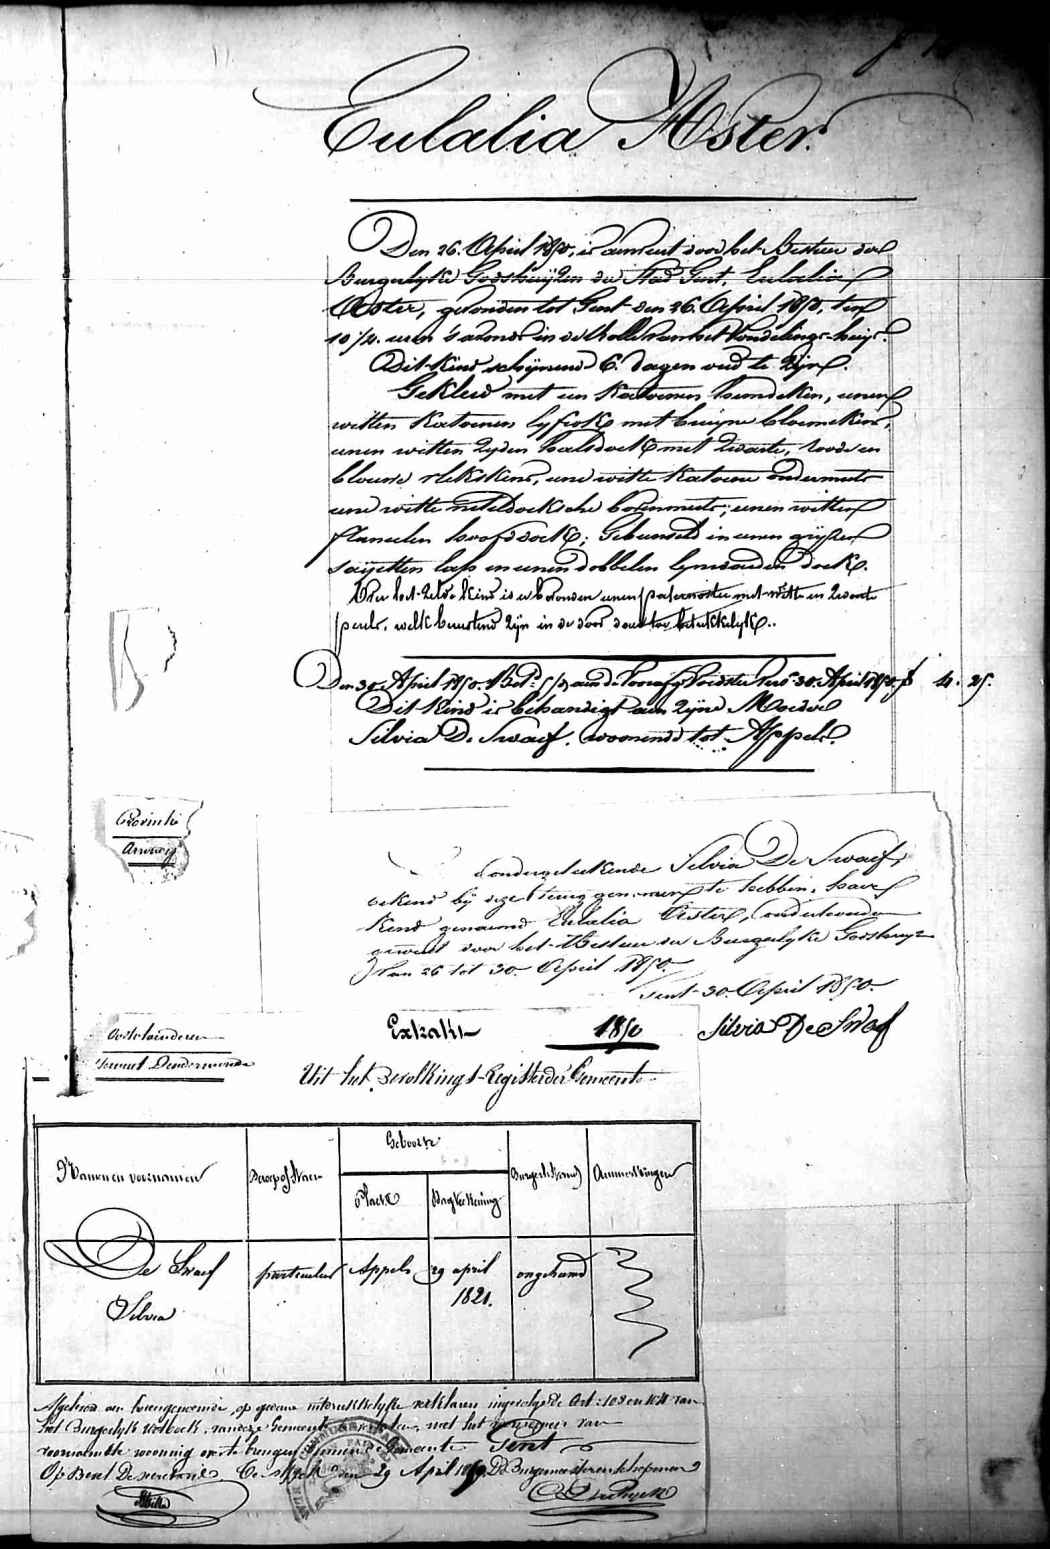 Eulalia Aster.
Den 26. April 1850, is aenveirt door het Bestier der
Burgerlyke Godshuyzen der Stad Gent, Eulalia
Aster, gevonden tot Gent den 26. April 1850, ten
10 1/4. uren 's avonds in de Rolle van het Vondelings-huys.
Dit Kind schynend 6. dagen oud te zyn.
Gekleed met een Katoenen hemdeken, eenen
witten Katoenen lyfrok met bruyne bloemekens,
eenen witten zyden halsdoek met zwarte, roode en
blouwe stekskens, eene witte Katoene ondermuts
eene witte neteldoeksche bovenmuts; eenen witten
flanelen hoofddoek; Gebunseld in eenen gryzen
saijetten lap en eenen dobbelen lynwaeden doek.
Over het zelve Kind is er bevonden eenen paternoster met witte en zwarte
perels, welk berustend zyn in de doos
Den 30. April 1850. aen de voedster 30. April 1850. f 4. 25.
Dit Kind is behandigt aen zyne Moeder
Silvia De Swaef, woonende tot Appels.
Provintie
ondergeteekende Silvia De Swaef,
bekend by deze terug genomen te hebben, haer
Kind genaemd Eulalia Aster, onderhouden
geweest door het Bestier der Burgerlyke Godshuyzen
van 26 tot 30. April 1850.
Gent 30. April 1850.
Silvia De Swaf
Oostvlaenderen
Dendermonde
Extrakt 1850
Uit het Bevolkings-Register der Gemeente
Namen en voornamen
Beroep of Staet
Geboorte
Plaets
Dagteekening
Burgerl. Stand
Aenmerkingen
De Swaef
Silvia
particuliere
Appels
29 april
1821.
ongehuwd
Afgeleverd aen bovengenoemde, op gedaene uitdrukkelyke verklaren ingevolge de Art: 103 en 104 van
het Burgerlyk Wetboek, van deze Gemeente te verlaten, met het voornemen van
voornaemde wooning over te brengen binnen de Gemeente Gent
Op den 29 April 1850. De Burgemeester en Schepenen